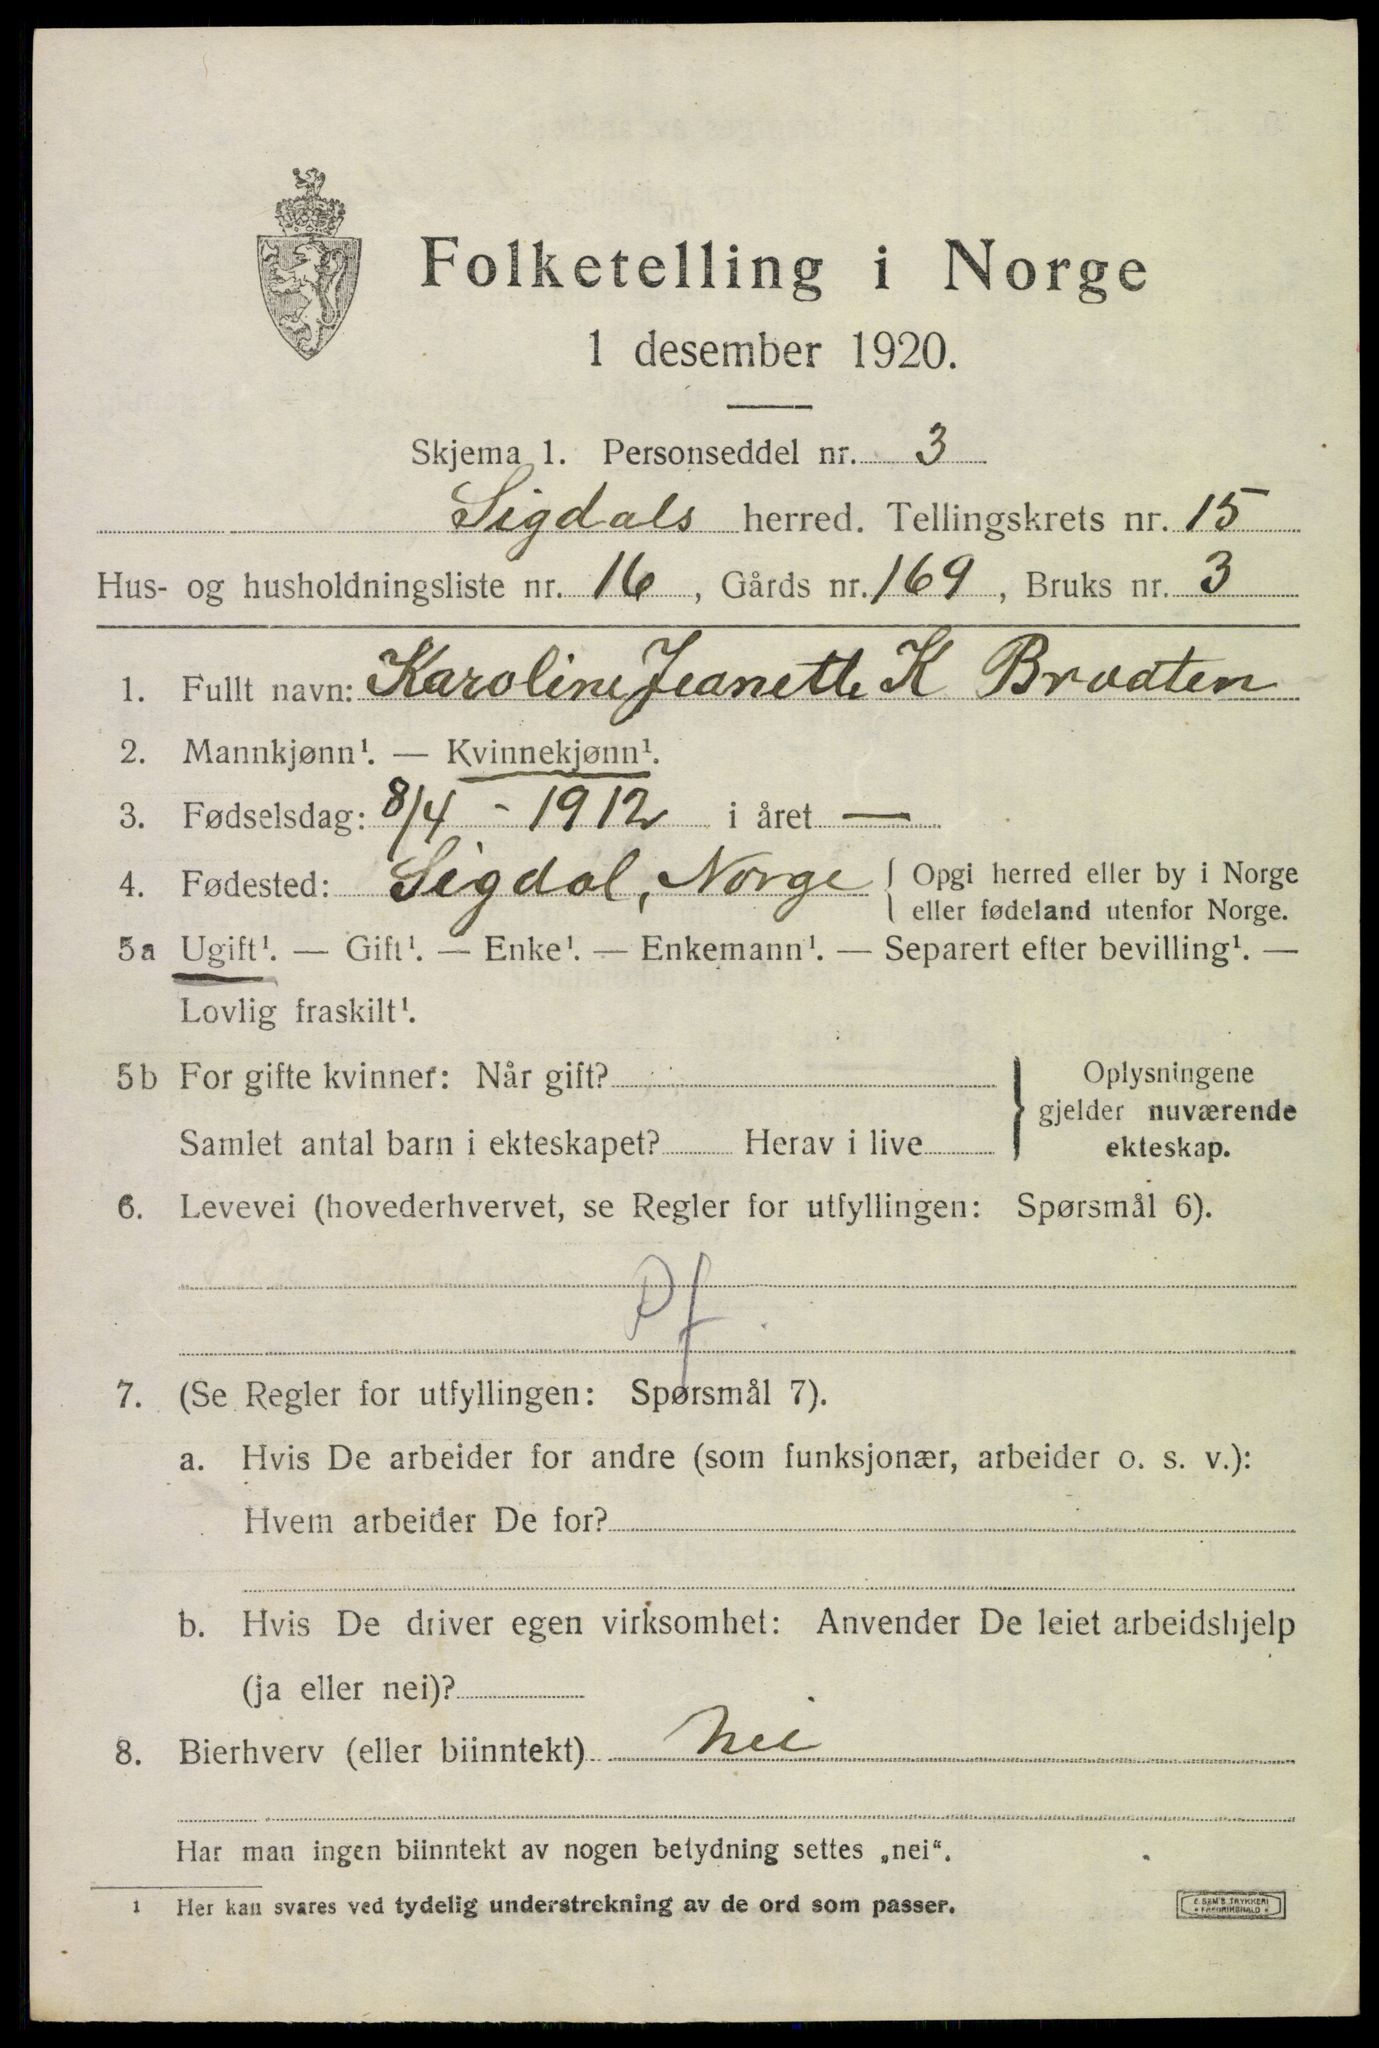 Folketelling i Norge
1 desember 1920.
Skjema 1. Personseddel nr. 3
Sigdals herred. Tellingskrets nr. 15
Hus- og husholdningsliste nr. 16, Gårds nr. 169, Bruks nr. 3
1. Fullt navn: Karoline Jeanette K Braaten
2. Mannkjønn¹. — Kvinnekjønn¹.
3. Fødselsdag: 8/4 - 1912 i året —
4. Fødested: Sigdal, Norge { Opgi herred eller by i Norge
eller fødeland utenfor Norge.
5a Ugift¹. — Gift¹. — Enke¹. — Enkemann¹. — Separert efter bevilling¹. —
Lovlig fraskilt¹.
5b For gifte kvinner: Når gift?
Samlet antal barn i ekteskapet? Herav i live
} Oplysningene
gjelder nuværende
ekteskap.
6. Levevei (hovederhvervet, se Regler for utfyllingen: Spørsmål 6).
Pf.
7. (Se Regler for utfyllingen: Spørsmål 7).
a. Hvis De arbeider for andre (som funksjonær, arbeider o. s. v.):
Hvem arbeider De for?
b. Hvis De driver egen virksomhet: Anvender De leiet arbeidshjelp
(ja eller nei)?
8. Bierhverv (eller biinntekt) Nei
Har man ingen biinntekt av nogen betydning settes „nei“.
1 Her kan svares ved tydelig understrekning av de ord som passer.
E. SEM'S TRYKKERI
FREDRIKSHALD